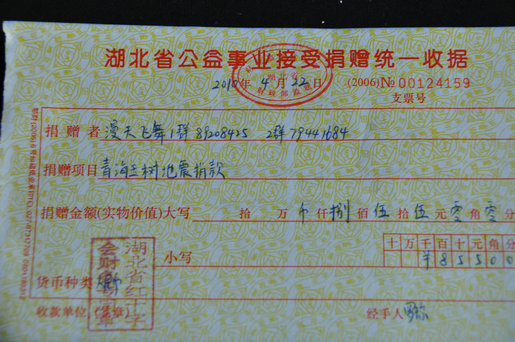 湖北省公益事业接受捐赠统一收据
2010年4月22日 (2006)№00124159
支票号
捐赠者 漫天飞舞1群89208425 2群79441684
捐赠项目 青海玉树地震捐款
捐赠金额(实物价值)大写 拾 万 仟捌佰伍拾伍元零角零分
小写 十万千百十元角分
¥85500
货币种类
收款单位(签章) 经手人
湖北省红十字会财